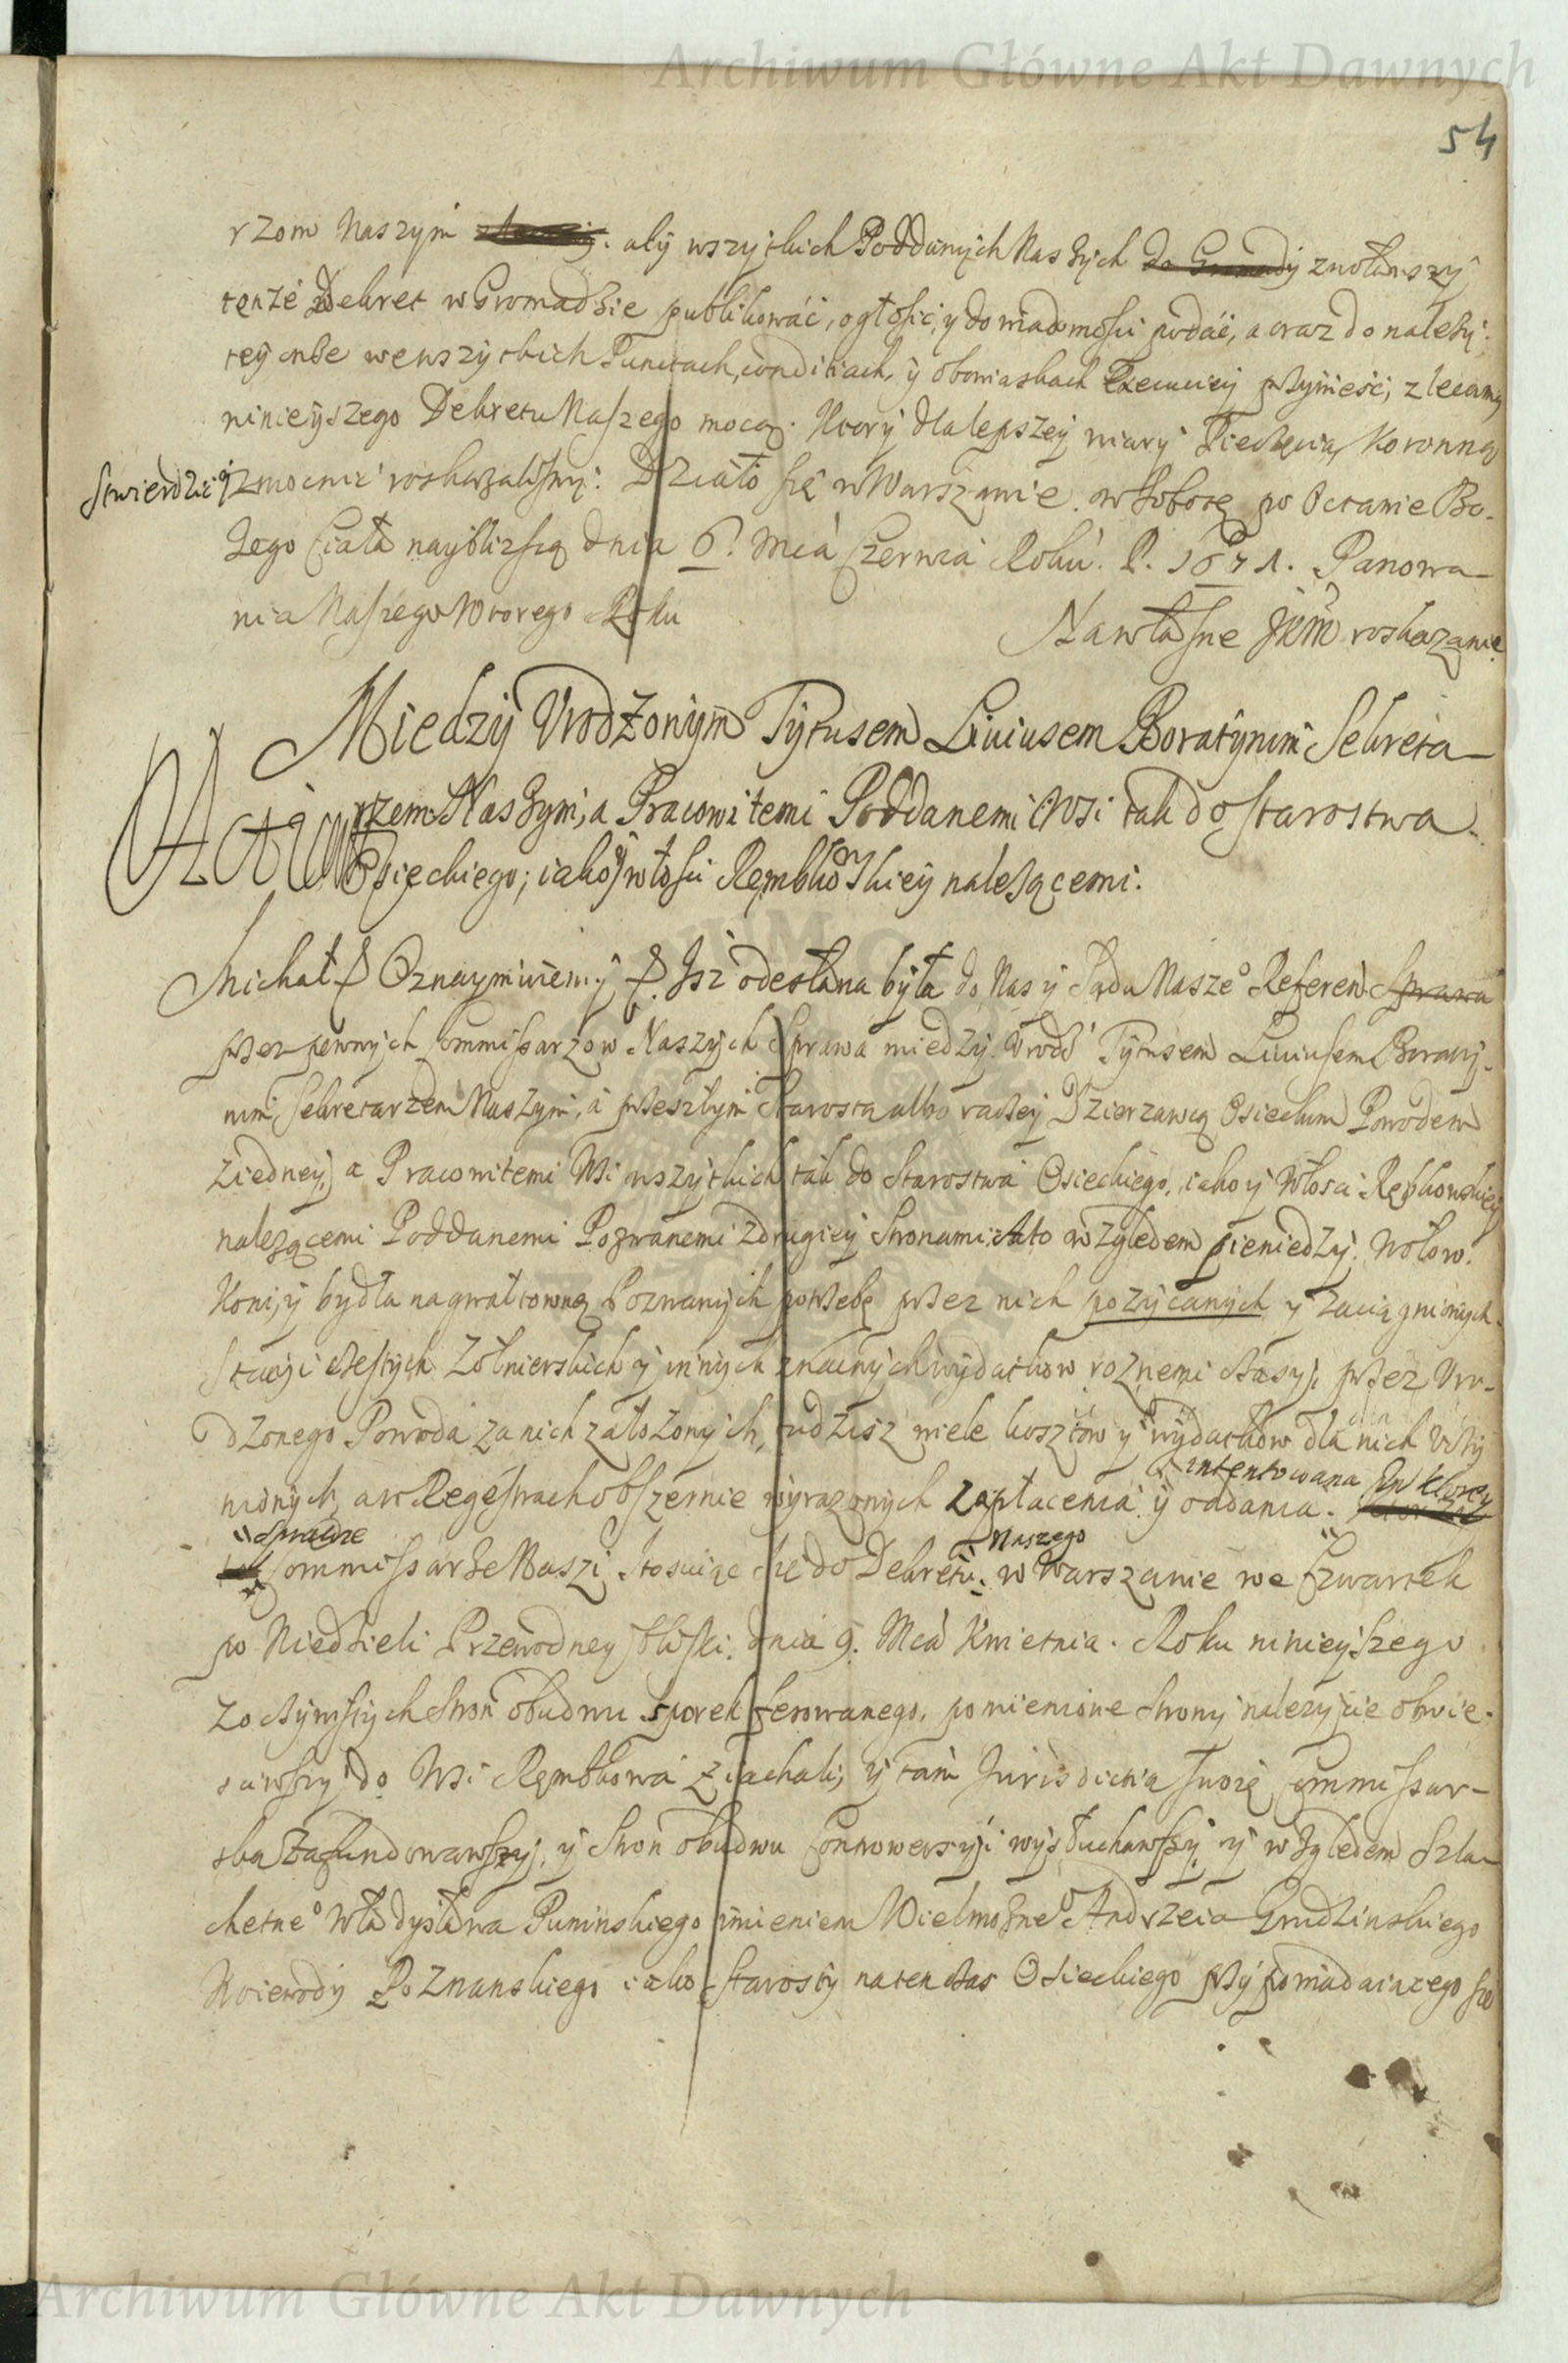 Archiwum Główne Akt Dawnych
54
rzom Naszym aby wszytkich Poddanych Naszych do Gromady zwoławszy
tenże Dekret w Gromadzie publikowáć, ogłosić, y do wiadomości podáć, a oraz do należy:
tey we wszytkich Punctach, conditiach, y obowiaskach Execuciey przywieść, zlecamy
ninieyszego Dekretu Naszego mocą. Ktory dla lepszey wiary Pieczęcią Koronną
Stwierdzić y zmocnić roskazalismy. Działo się w Warszawie w Sobotę po Octawie Bo-
żego Ciała naybliższą dnia 6. Mcá Czerwcá Roku P. 1671. Panowa-
nia Naszego Wtorego Roku
Na własne JKM roskazanie
Miedzy Vrodzonym Tytusem Liuiusem Boratynim Sekreta-
Actum
rzem Naszym, a Pracowitemi Poddanemi Wsi tak do Starostwa
Osieckiego, iako y włości Rembkowskiey należącemi.
Michał Oznaymuiemy Jż odesłana była do Nas y Sądu Nasze° Referen Sprawa
przez pewnych Commissarzow Naszych Sprawa miedzy Vrodz Tytusem Liuiusem Boraty-
nim, Sekretarzem Naszym, á przeszłym Starostą albo raczey Dzierzawcą Osieckim Powodem
z iedney, a Pracowitemi Wsi wszytkich tak do Starostwa Osieckiego, iako y Włosci Rębkowskiey
należącemi Poddanemi Pozwanemi z drugiey Stronami A to względem pieniedzy, Wołow,
Koni, y bydła na gwałtowną Pozwanych potrzebę przez nich pozyczanych y zaciągnionych
Stacyi częstych Zołnierskich y innych znacznych wydatkow roznemi czasy, przez Vro-
dzonego Powoda za nich założonych, tudzisz wiele kosztow y wydatkow dla nich vczy
nionych, a w Regestrach obszernie wyrazonych zapłacenia y oddania.
intentowana W ktorey
Sprawie
Commissarze Naszi stosuiąc się do Dekretu Naszego w Warszawie we Czwartek
po Niedzieli Przewodney bliski dnia 9. Mcá Kwietnia Roku ninieyszego
z oczywistych Stron obudwu sporek ferowanego, pomienione strony należycie obwie-
sciwszy do Wsi Rembkowa ziachali, y tam Jurisdictia swoię Commissar-
ską zafundowawszy, y Stron obudwu Controwersyi wysłuchawszy y względem Szla-
chetne° Władysława Puninskiego imieniem Wielmożne° Andrzeia Grudzinskiego
Woiewody Poznanskiego iako Starosty na ten czas Osieckiego przypowiadaiącego się
Archiwum Główne Akt Dawnych